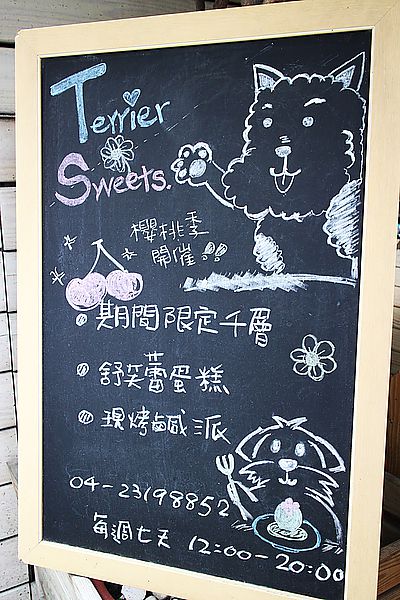 Terrier
Sweets.
櫻桃季
開催!!
期間限定千層
舒芙蕾蛋糕
現烤鹹派
04-23198852
每週七天 12:00-20:00